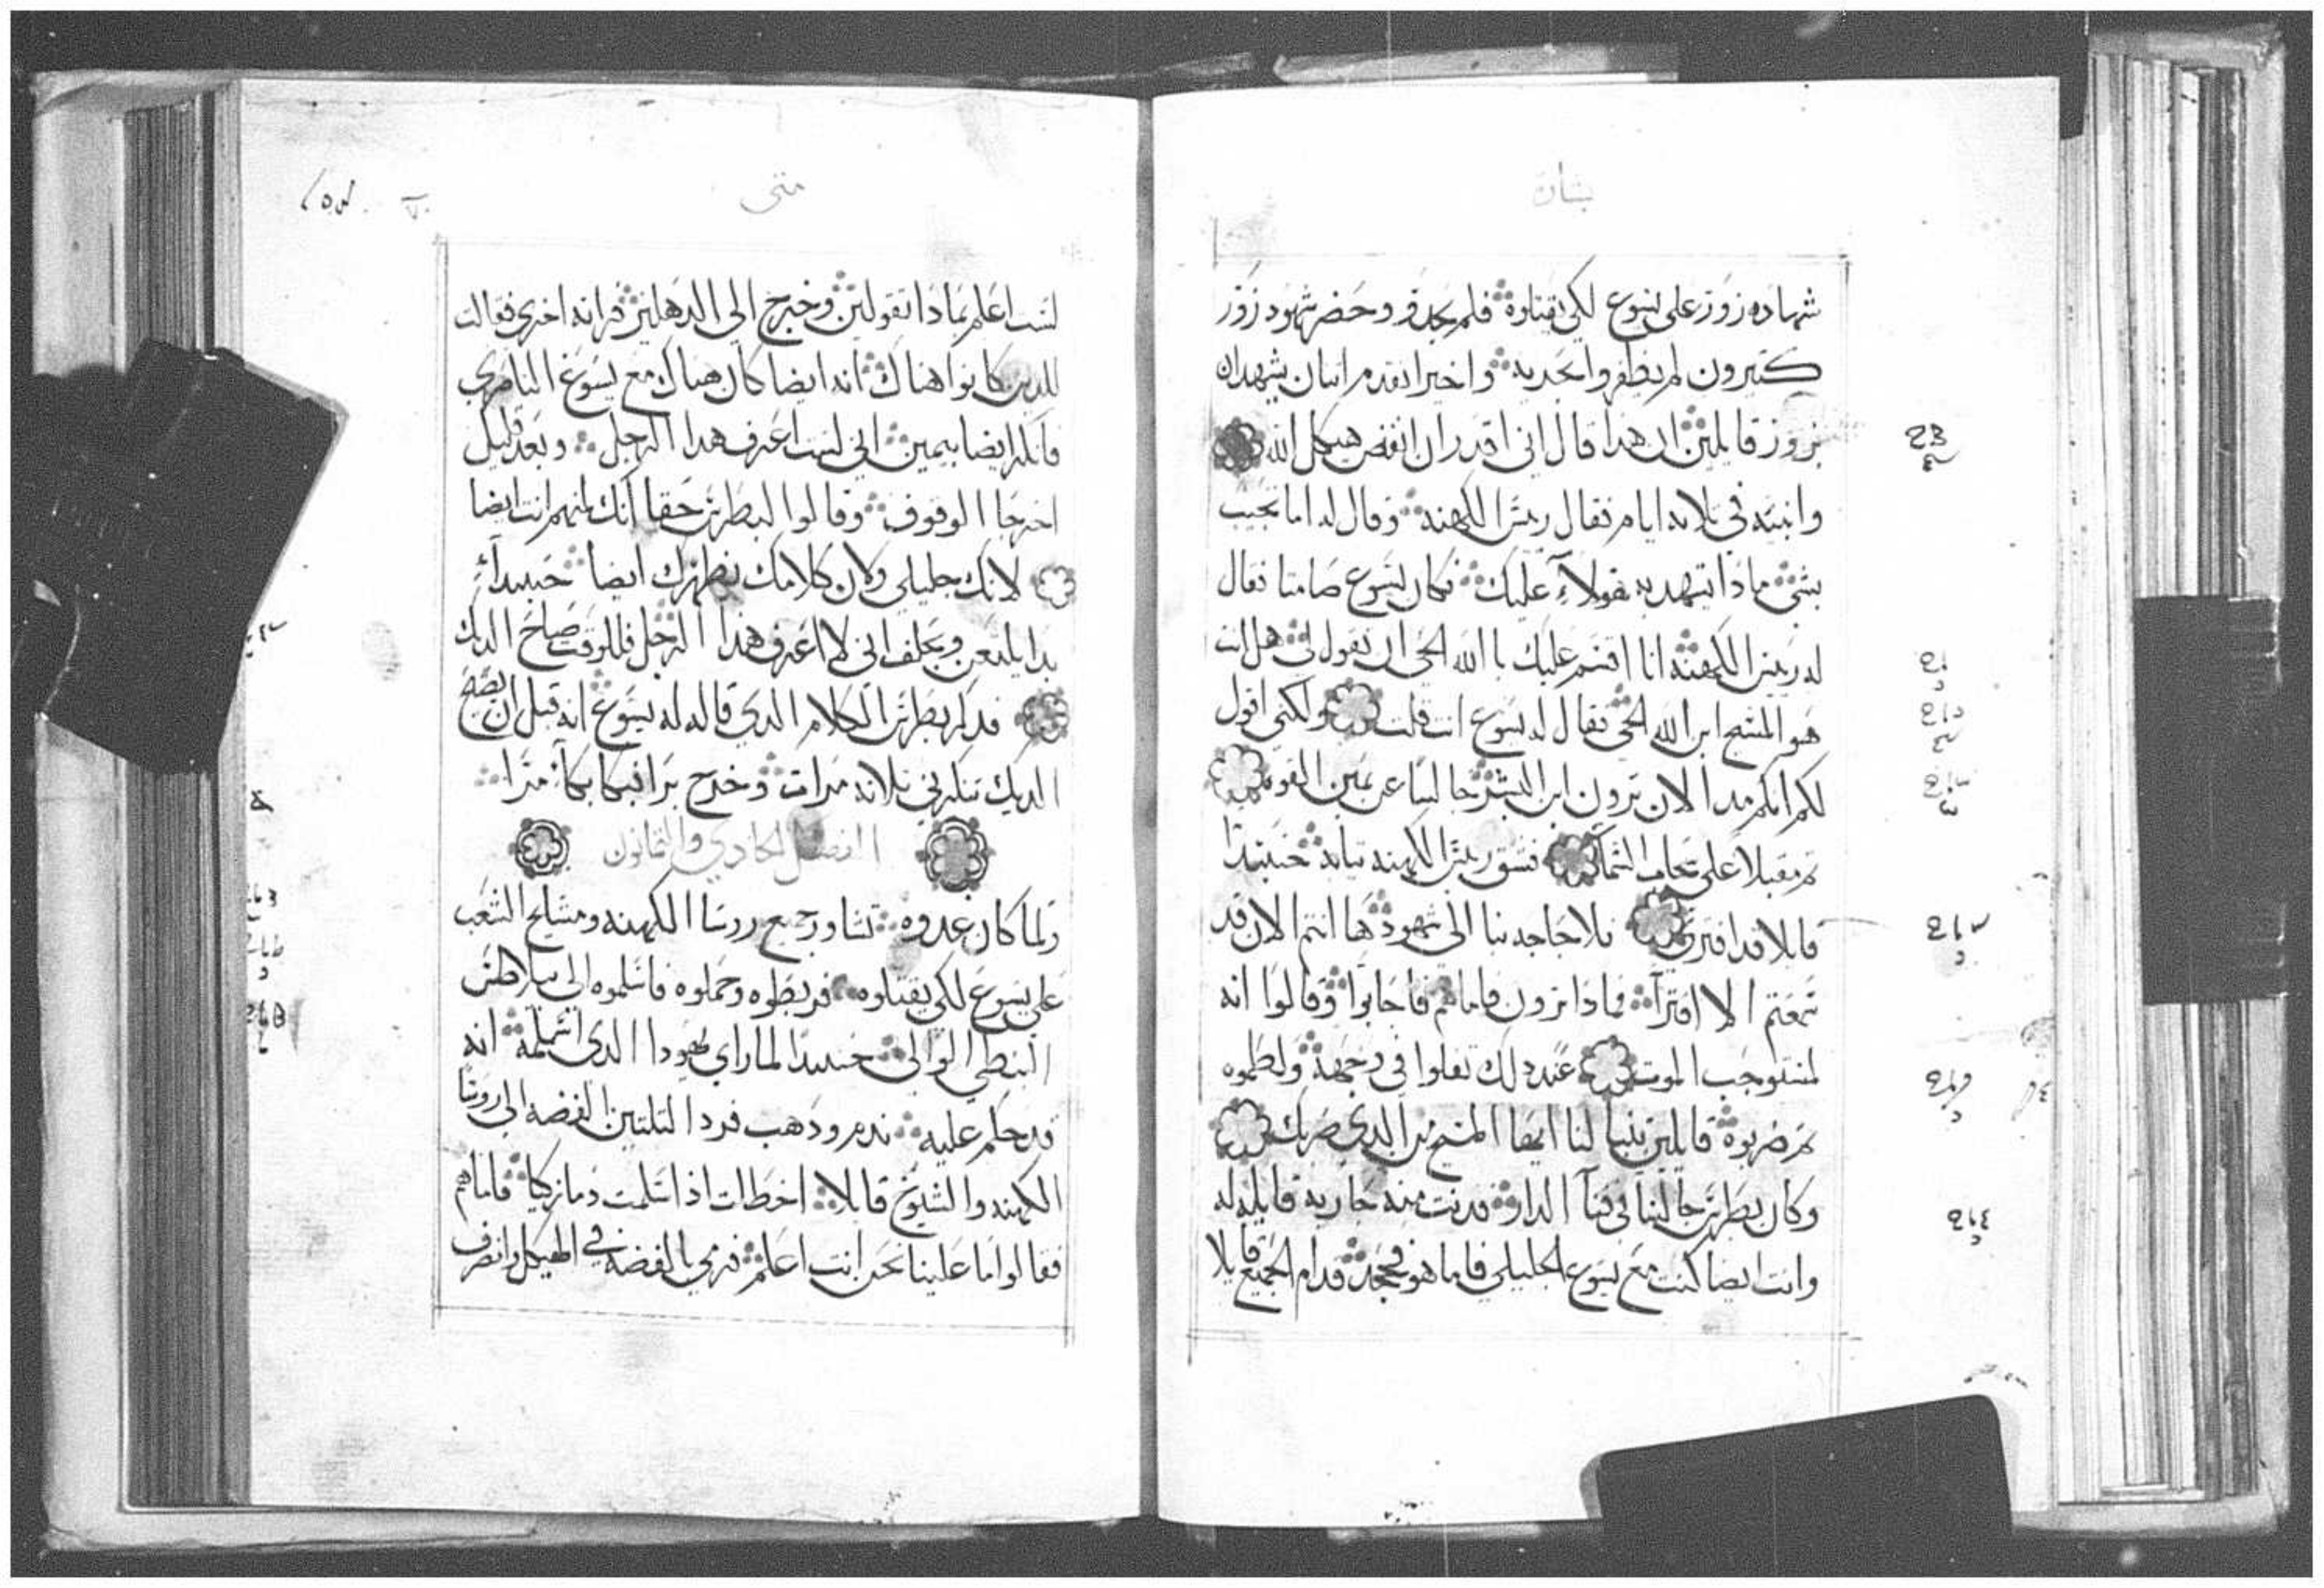 بشارة
شهاده زور على يسوع لكي يقتلوه فلم يجدو وحضر شهود زور
كتيرون لم يظفروا بجديه واخيرا تقدم اتنان يشهدان
بزور قايلين ان هدا قال اني اقدر ان انقض هيكل الله
وابنيه في تلاته ايام فقال ريس الكهنه وقال له اما تجيب
بشي ماذا يشهد به هولاء عليك فكان يسوع صامتا فقال
له ريس الكهنه انا اقسم عليك بالله الحي ان تقول لي هل انت
هو المسيح ابن الله الحي فقال له يسوع انت قلت ولكني اقول
لكم انكم مند الان ترون ابن البشر جالسا عن يمين القوه
تم مقبلا على سحاب السماء فشق ريس الكهنه تيابه حينيدا
قايلا قد افترى فلا حاجه بنا الى شهود ها انتم الان قد
سمعتم الافترا فماذا ترون فاما هم فاجابوا وقالوا انه
لمستوجب الموت عند دلك تفلوا في وجهه ولطموه
تم ضربوه قايلين تنبا لنا ايها المسيح من الدي ضربك
وكان بطرس جالسا في فنا الدار فدنت منه جاريه قايله له
وانت ايضا كنت مع يسوع الجليلي فاما هو فجحد قدام الجميع قايلا
متى
لست اعلم بماذا تقولين وخرج الى الدهليز فراته اخرى فقالت
للدين كانوا هناك انه ايضا كان هناك مع يسوع الناصري
فانكر ايضا بيمين اني لست اعرف هدا الرجل وبعد قليل
الوقوف وقالوا لبطرس حقا انك منهم انت ايضا
لانك جليلي ولان كلامك يظهرك ايضا حينيدا
بدا يلعن ويحلف اني لا اعرف هدا الرجل فللوقت صاح الديك
فدكر بطرس الكلام الدي قاله له يسوع انه قبل ان يصيح
الديك تنكرني تلاته مرات وخرج برا فبكا بكاء مرا
الفصل الحادي والتمانون
ولما كان غدوه تشاور جميع روسا الكهنه ومشايخ الشعب
على يسوع لكي يقتلوه فربطوه وحملوه فاسلموه الى بيلاطس
النبطي الوالي حينيدا لما راي يهودا الدي اسلمه انه
قد حكم عليه ندم ودهب فرد التلتين الفضه الى روسا
الكهنه والشيوخ قايلا اخطات اذ اسلمت دما زكيا فاما هم
فقالوا ما علينا نحن انت اعلم فرمي بالفضه في الهيكل وانصرف